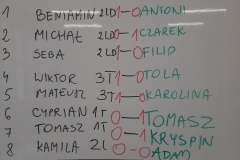 1 BENIAMIN 2LD 1-0 ANTONI
2 MICHAŁ 2LD 1-1 CZAREK
3 SEBA 2LD 1-0 FILIP
4 WIKTOR 3T 1-0 TOLA
5 MATEUSZ 3T 1-0 KAROLINA
6 CYPRIAN 1T 0-1 TOMASZ
7 TOMASZ 1T 0-1 KRYSPIN
8 KAMILA 2L 0-0 ADAM